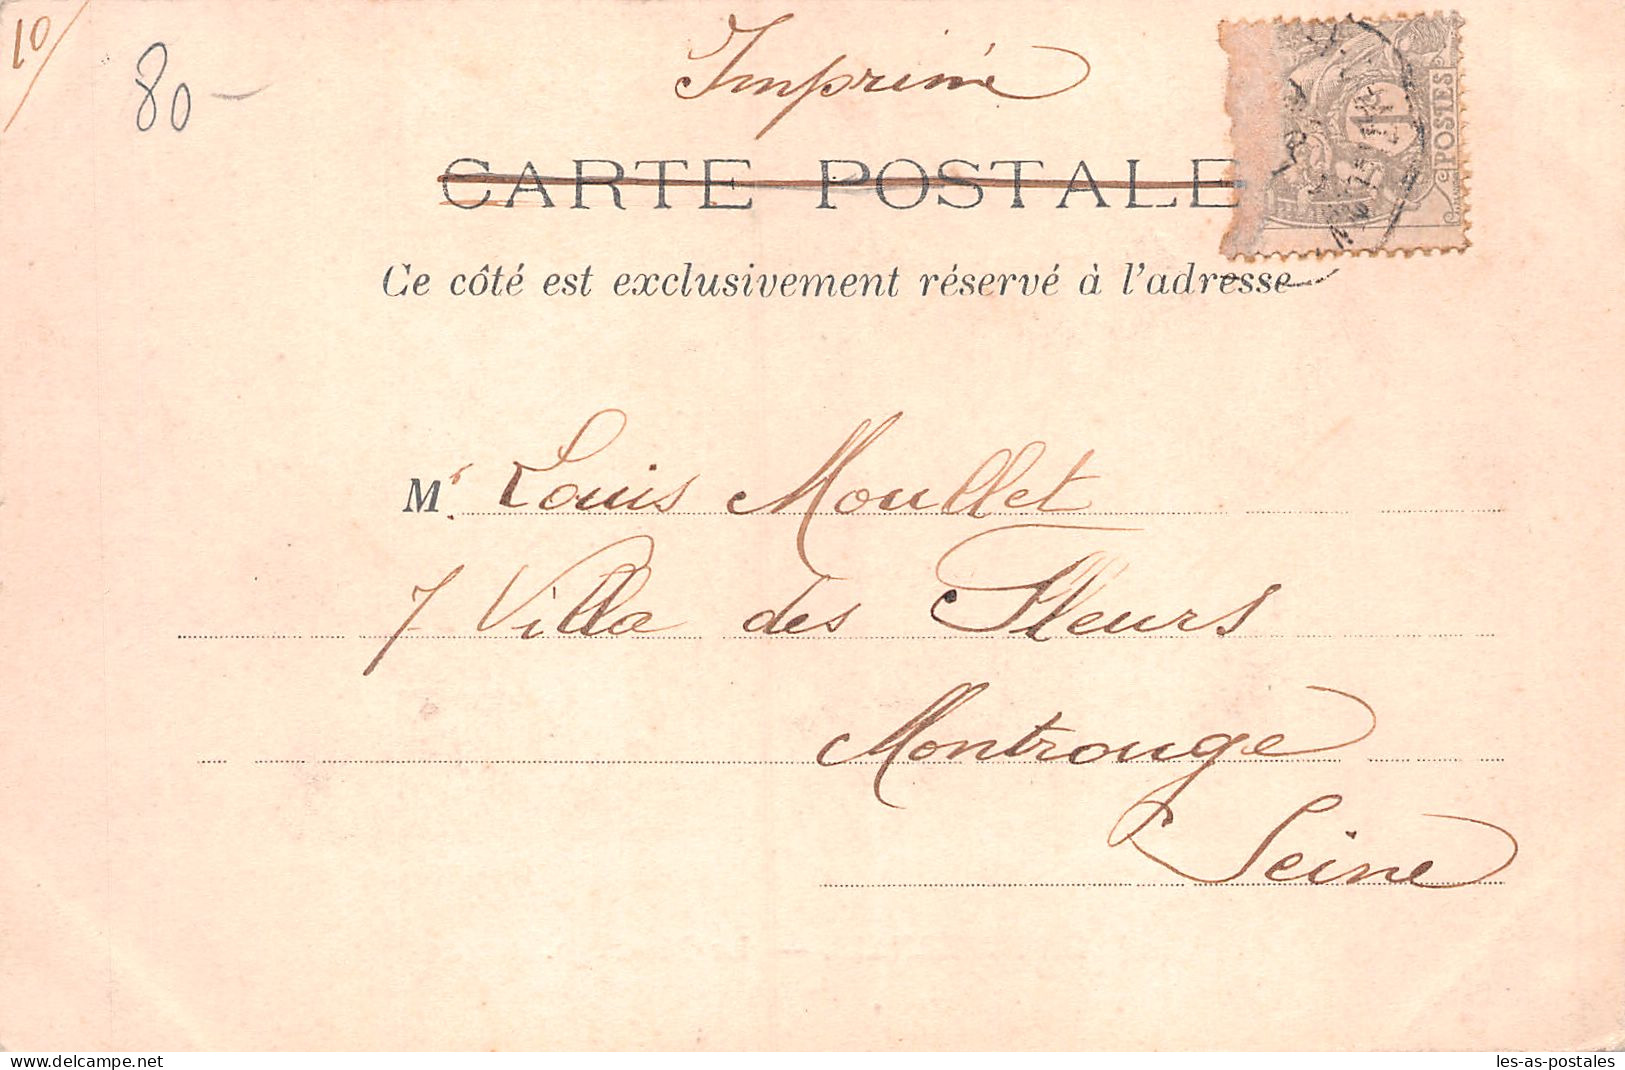 10/
80 -
Imprimé
CARTE POSTALE
1
POSTES
Ce côté est exclusivement réservé à l'adresse
Mr. Louis Moullet
7 Villa des Fleurs
Montrouge
Seine
delcampe.net
les-as-postales